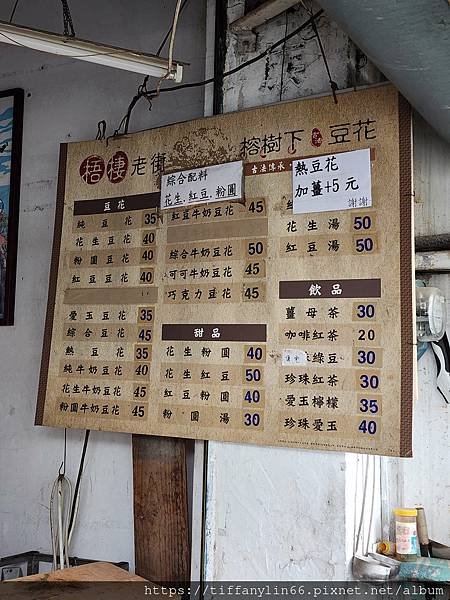 梧棲老街
榕樹下 豆花
古法傳承
綜合配料
花生.紅豆.粉圓
熱豆花
加薑+5元
謝謝
豆花
純豆花 35
花生豆花 40
粉圓豆花 40
紅豆豆花 40
愛玉豆花 45
綜合豆花 45
熱豆花 35
純牛奶豆花 40
花生牛奶豆花 45
粉圓牛奶豆花 45
紅豆牛奶豆花 45
綜合牛奶豆花 50
可可牛奶豆花 45
巧克力豆花 45
甜品
花生粉圓 40
花生紅豆 50
紅豆粉圓 40
粉圓湯 30
花生湯 50
紅豆湯 50
飲品
薑母茶 30
咖啡紅茶 20
綠豆 30
珍珠紅茶 30
愛玉檸檬 35
珍珠愛玉 40
https://tiffanylin66.pixnet.net/album